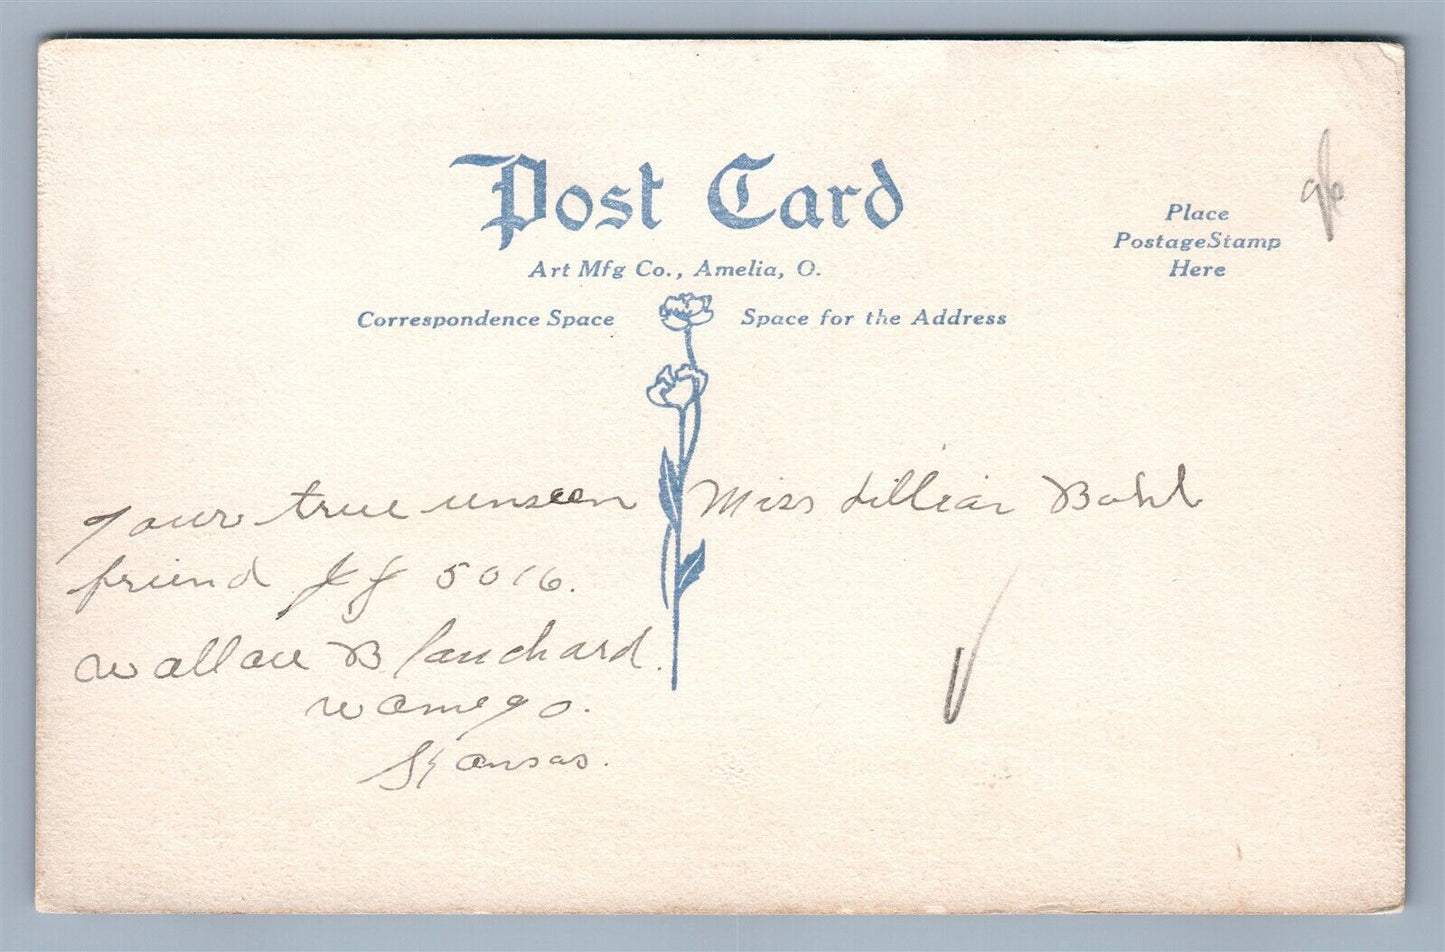 Post Card
Art Mfg Co., Amelia, O.
Place
Postage Stamp
Here
Correspondence Space
Space for the Address
Your true unseen
friend J J 5016.
Wallace Blanchard.
Wamego.
Kansas.
Miss Lillian Bohl